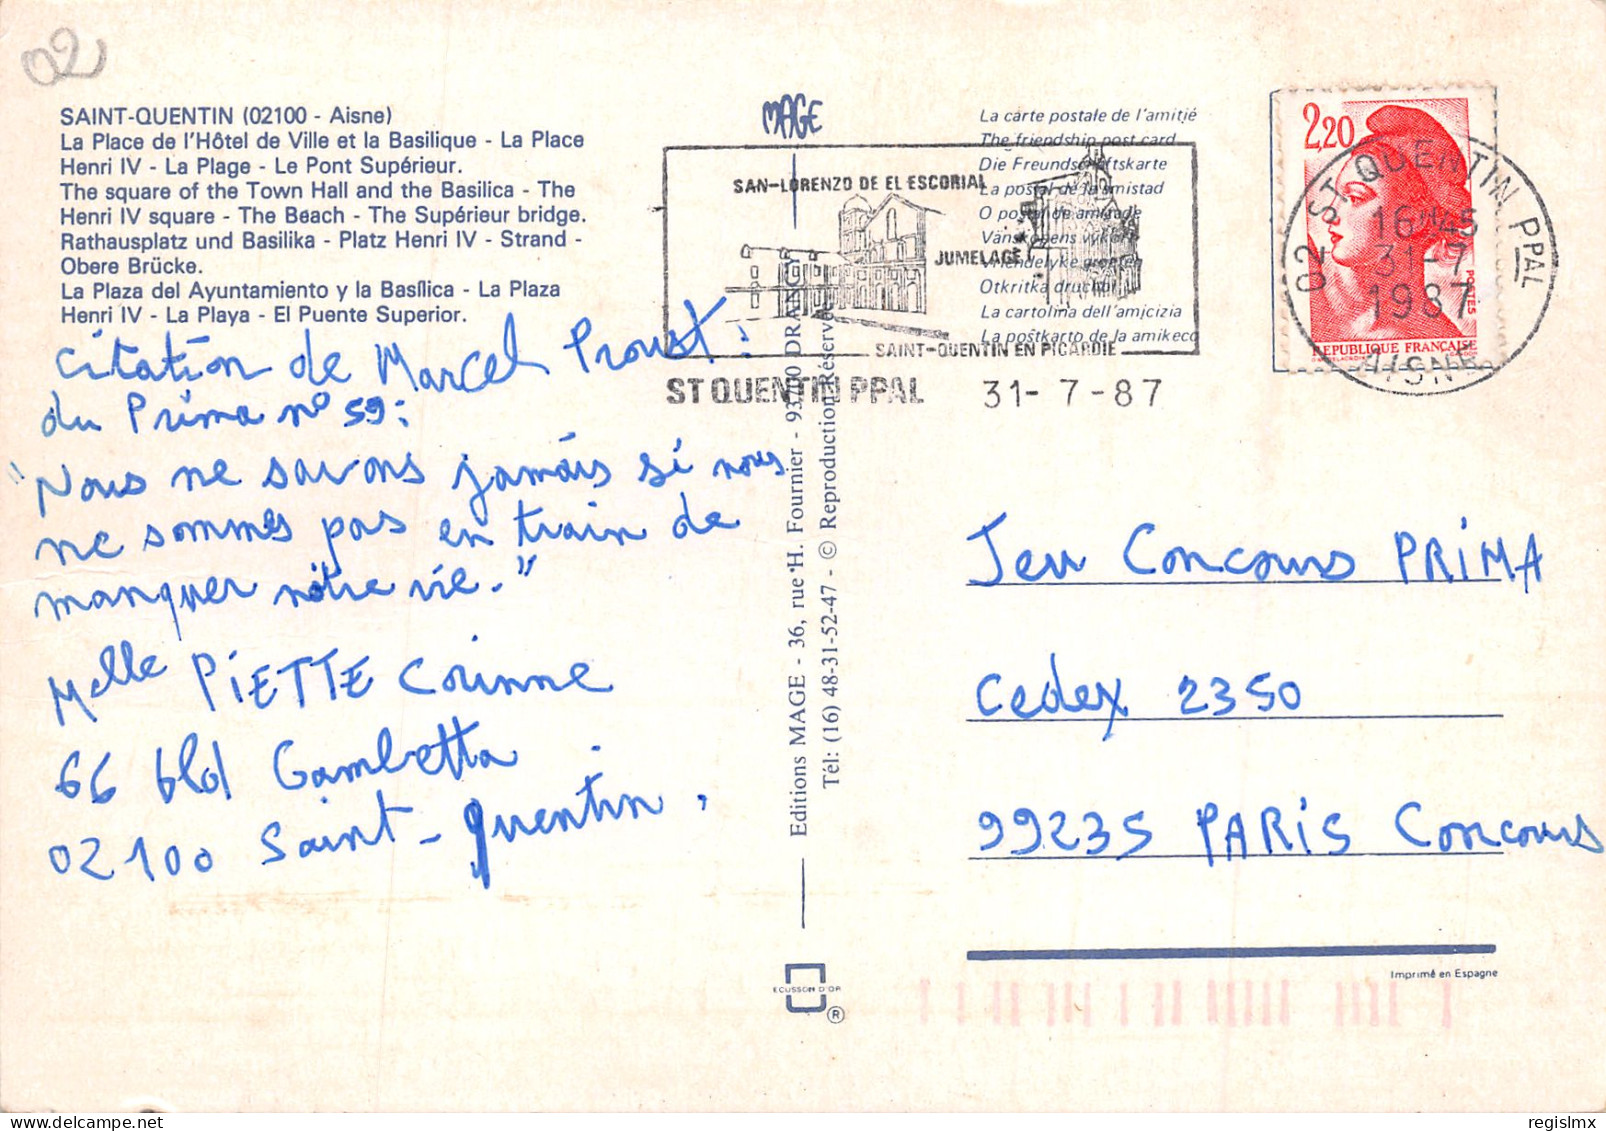 02
SAINT-QUENTIN (02100 - Aisne)
La Place de l'Hôtel de Ville et la Basilique - La Place
Henri IV - La Plage - Le Pont Supérieur.
The square of the Town Hall and the Basilica - The
Henri IV square - The Beach - The Supérieur bridge.
Rathausplatz und Basilika - Platz Henri IV - Strand -
Obere Brücke.
La Plaza del Ayuntamiento y la Basílica - La Plaza
Henri IV - La Playa - El Puente Superior.
Citation de Marcel Proust :
du Prima n° 59 :
"Nous ne savons jamais si nous
ne sommes pas en train de
manquer nôtre vie."
Melle PIETTE Corinne
66 bld Gambetta
02100 Saint-Quentin.
MAGE
Editions MAGE - 36, rue H. Fournier - 93700 DRANCY
Tél: (16) 48-31-52-47 - © Reproduction Réservée
ECUSSON D'OR
®
La carte postale de l'amitié
The friendship post card
Die Freundschaftskarte
La postal de la amistad
O postal de amizade
Vänskapens vykort
Vriendelyke groeten
Otkritka druchbi
La cartolina dell'amicizia
La poŝtkarto de la amikeco
SAN-LORENZO DE EL ESCORIAL
JUMELAGE
SAINT-QUENTIN EN PICARDIE
ST QUENTIN PPAL 31-7-87
2,20
POSTES
REPUBLIQUE FRANÇAISE
02 ST QUENTIN PPAL
16H45
31-7
1987
AISNE
Jeu Concours PRIMA
Cedex 2350
99235 PARIS Concours
Imprimé en Espagne
regislmx
delcampe.net